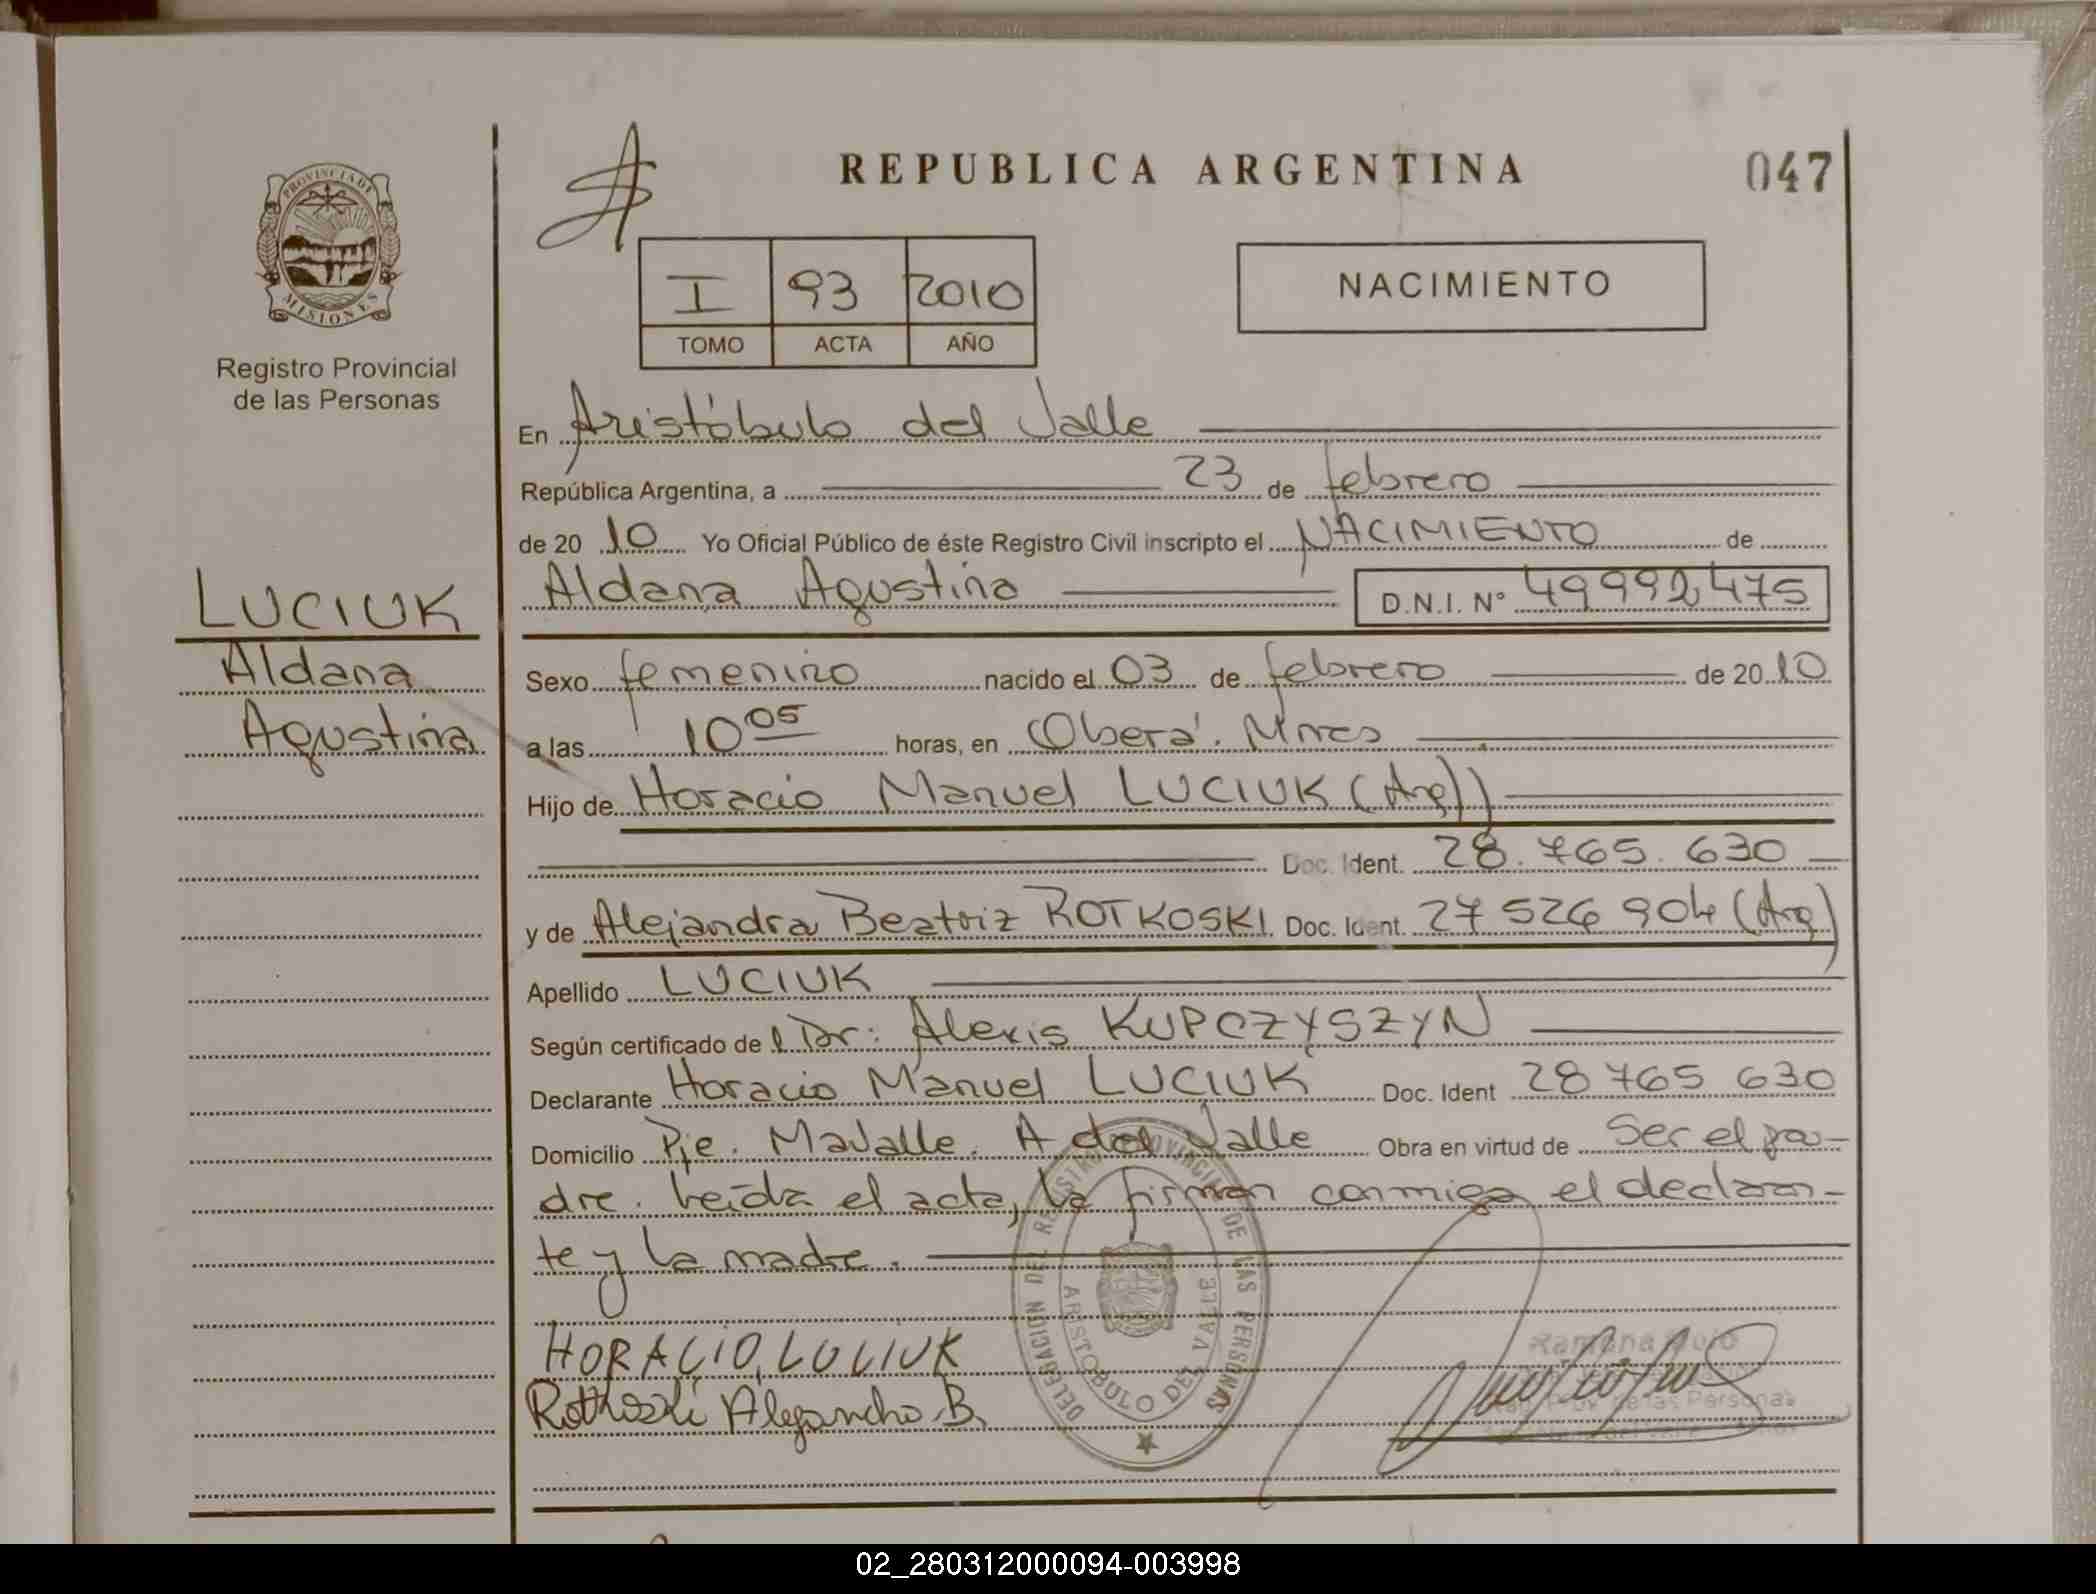 REPUBLICA ARGENTINA
047
PROVINCIA DE
MISIONES
Registro Provincial
de las Personas
I 93 2010
TOMO ACTA AÑO
NACIMIENTO
En Aristóbulo del Valle
República Argentina, a 23 de febrero
de 20 10 Yo Oficial Público de éste Registro Civil inscripto el NACIMIENTO de
LUCIUK
Aldana Agustina D.N.I. N° 49992475
Aldana
Agustina
Sexo femenino nacido el 03 de febrero de 20 10
a las 10 05 horas, en Oberá. Mnes
Hijo de Horacio Manuel LUCIUK (Arg)
Doc. Ident. 28.765.630
y de Alejandra Beatriz ROTKOSKI Doc. Ident. 27 526 904 (Arg)
Apellido LUCIUK
Según certificado de l Dr: Alexis KUPCZYSZYN
Declarante Horacio Manuel LUCIUK Doc. Ident 28 765 630
Domicilio Pje. Mavalle. A del Valle Obra en virtud de Ser el pa-
dre. Leída el acta, la firman conmigo el declaran-
te y la madre.
HORACIO, LUCIUK
Rotkoski Alejandra B.
DELEGACION DEL REGISTRO PROVINCIAL DE LAS PERSONAS
ARISTOBULO DEL VALLE
Ramona
de las Personas
02_280312000094-003998